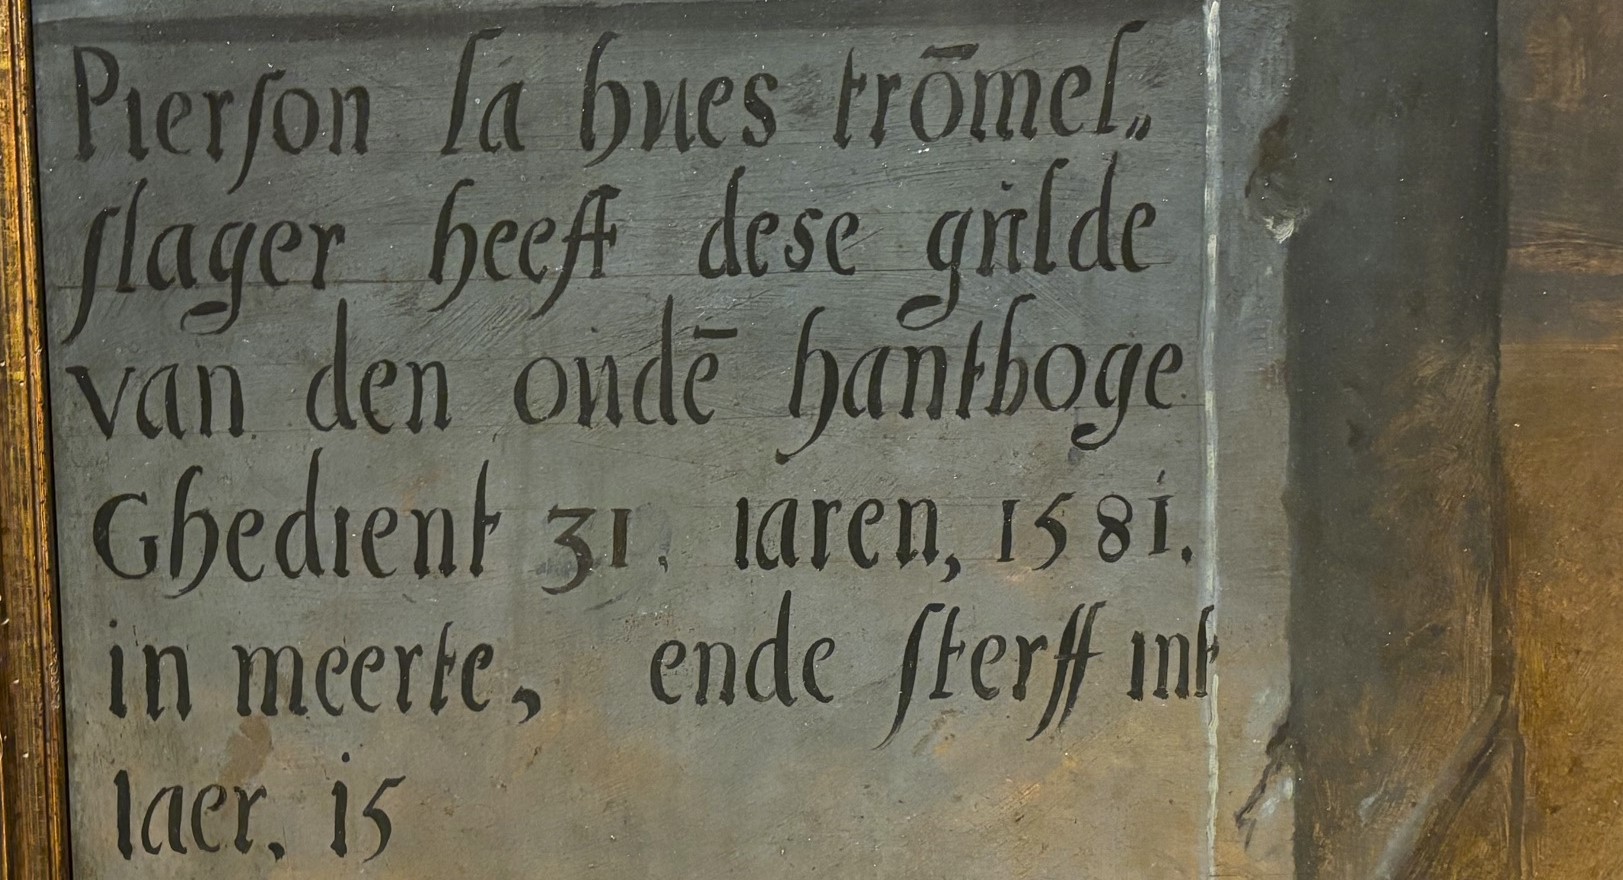 Pierson la hues trōmel„
slager heeft dese gulde
van den oudē hantboge
Ghedient 31. iaren, 1581.
in meerte, ende sterff int
Iaer. 15